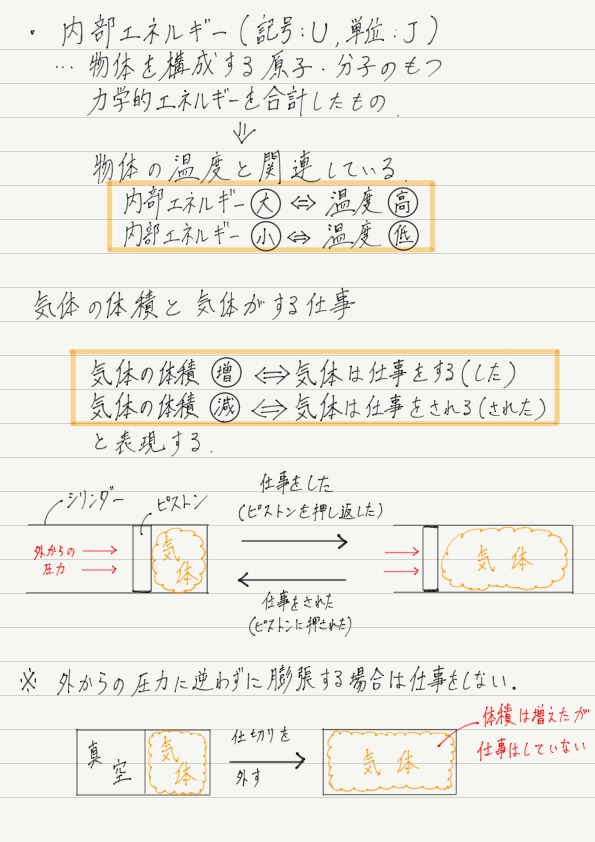 ・内部エネルギー(記号:U,単位:J)
… 物体を構成する原子・分子のもつ
力学的エネルギーを合計したもの.
⇓
物体の温度と関連している.
内部エネルギー 大 ⇔ 温度 高
内部エネルギー 小 ⇔ 温度 低
気体の体積と気体がする仕事
気体の体積 増 ⇔ 気体は仕事をする(した)
気体の体積 減 ⇔ 気体は仕事をされる(された)
と表現する.
シリンダー
ピストン
外からの
圧力
気
体
仕事をした
(ピストンを押し返した)
仕事をされた
(ピストンに押された)
気体
※ 外からの圧力に逆わずに膨張する場合は仕事をしない.
真
空
気
体
仕切りを
外す
気体
体積は増えたが
仕事はしていない